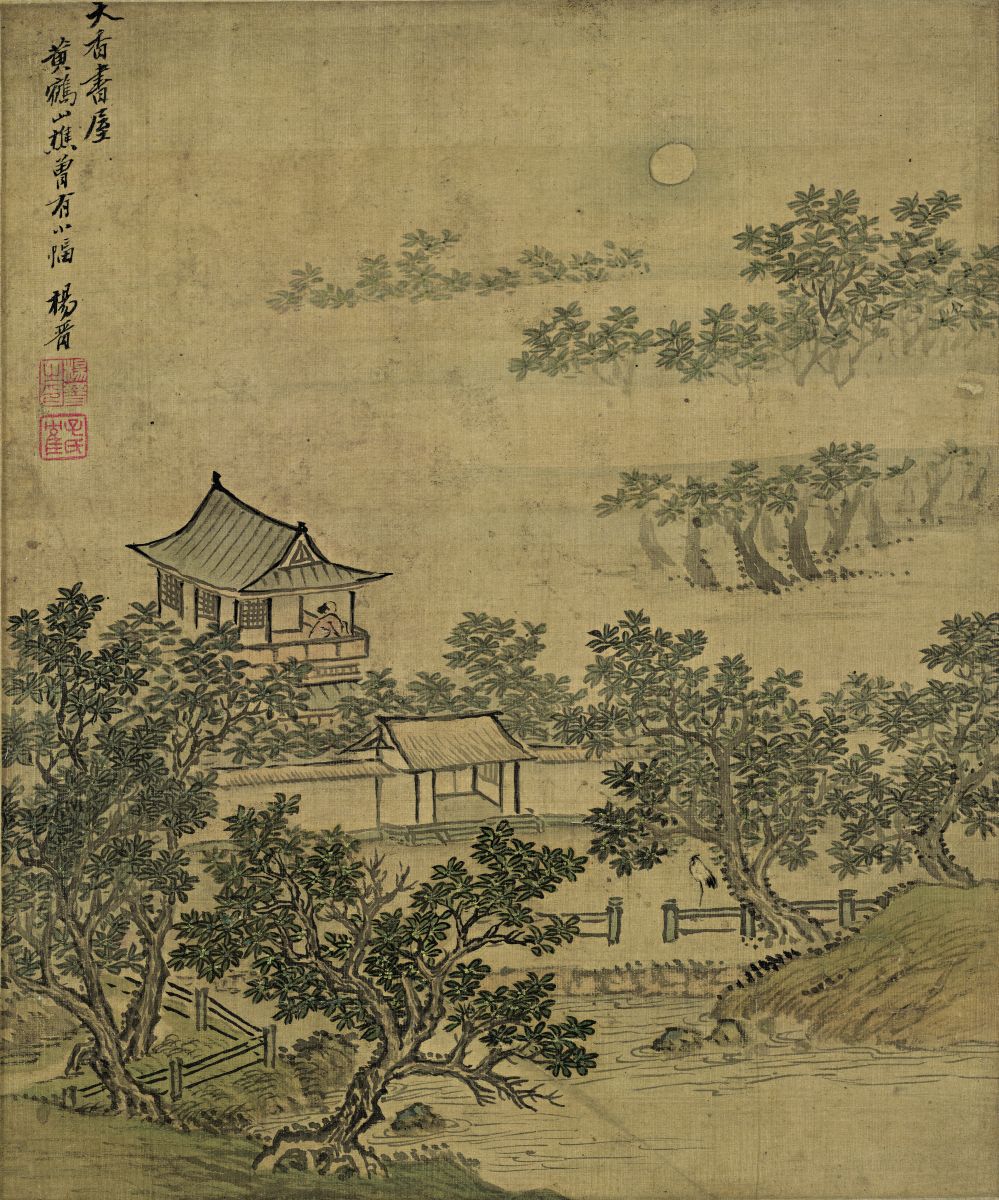 天香書屋
黄鶴山樵曽有小幅 楊晋